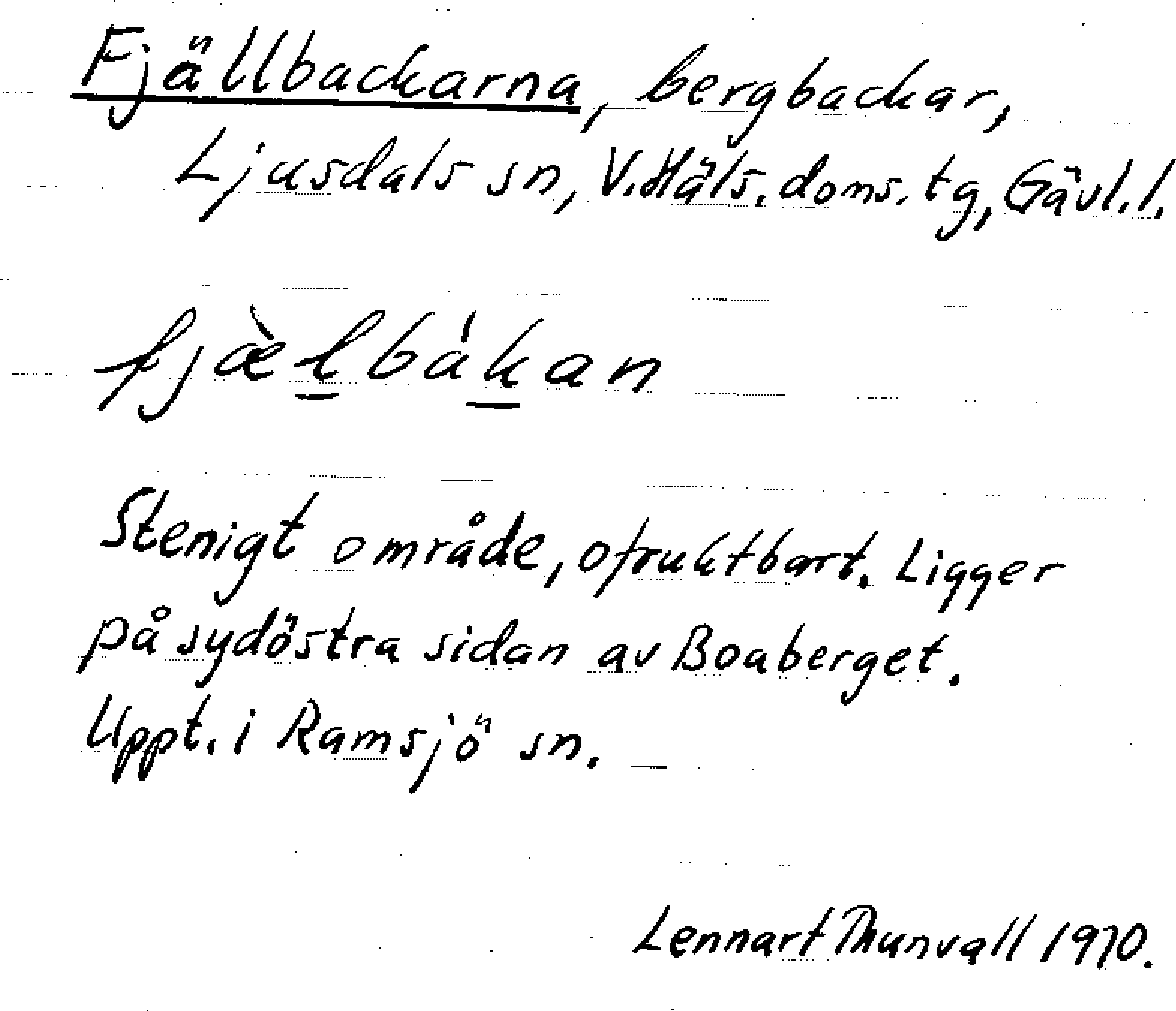 Fjällbackarna, bergbackar,
Ljusdals sn, V. Häls. doms. tg, Gävl. l.
fjæ̀l̲bák̲an
Stenigt område, ofruktbart. Ligger
på sydöstra sidan av Boaberget.
Uppt. i Ramsjö sn. —
Lennart Thunvall 1970.